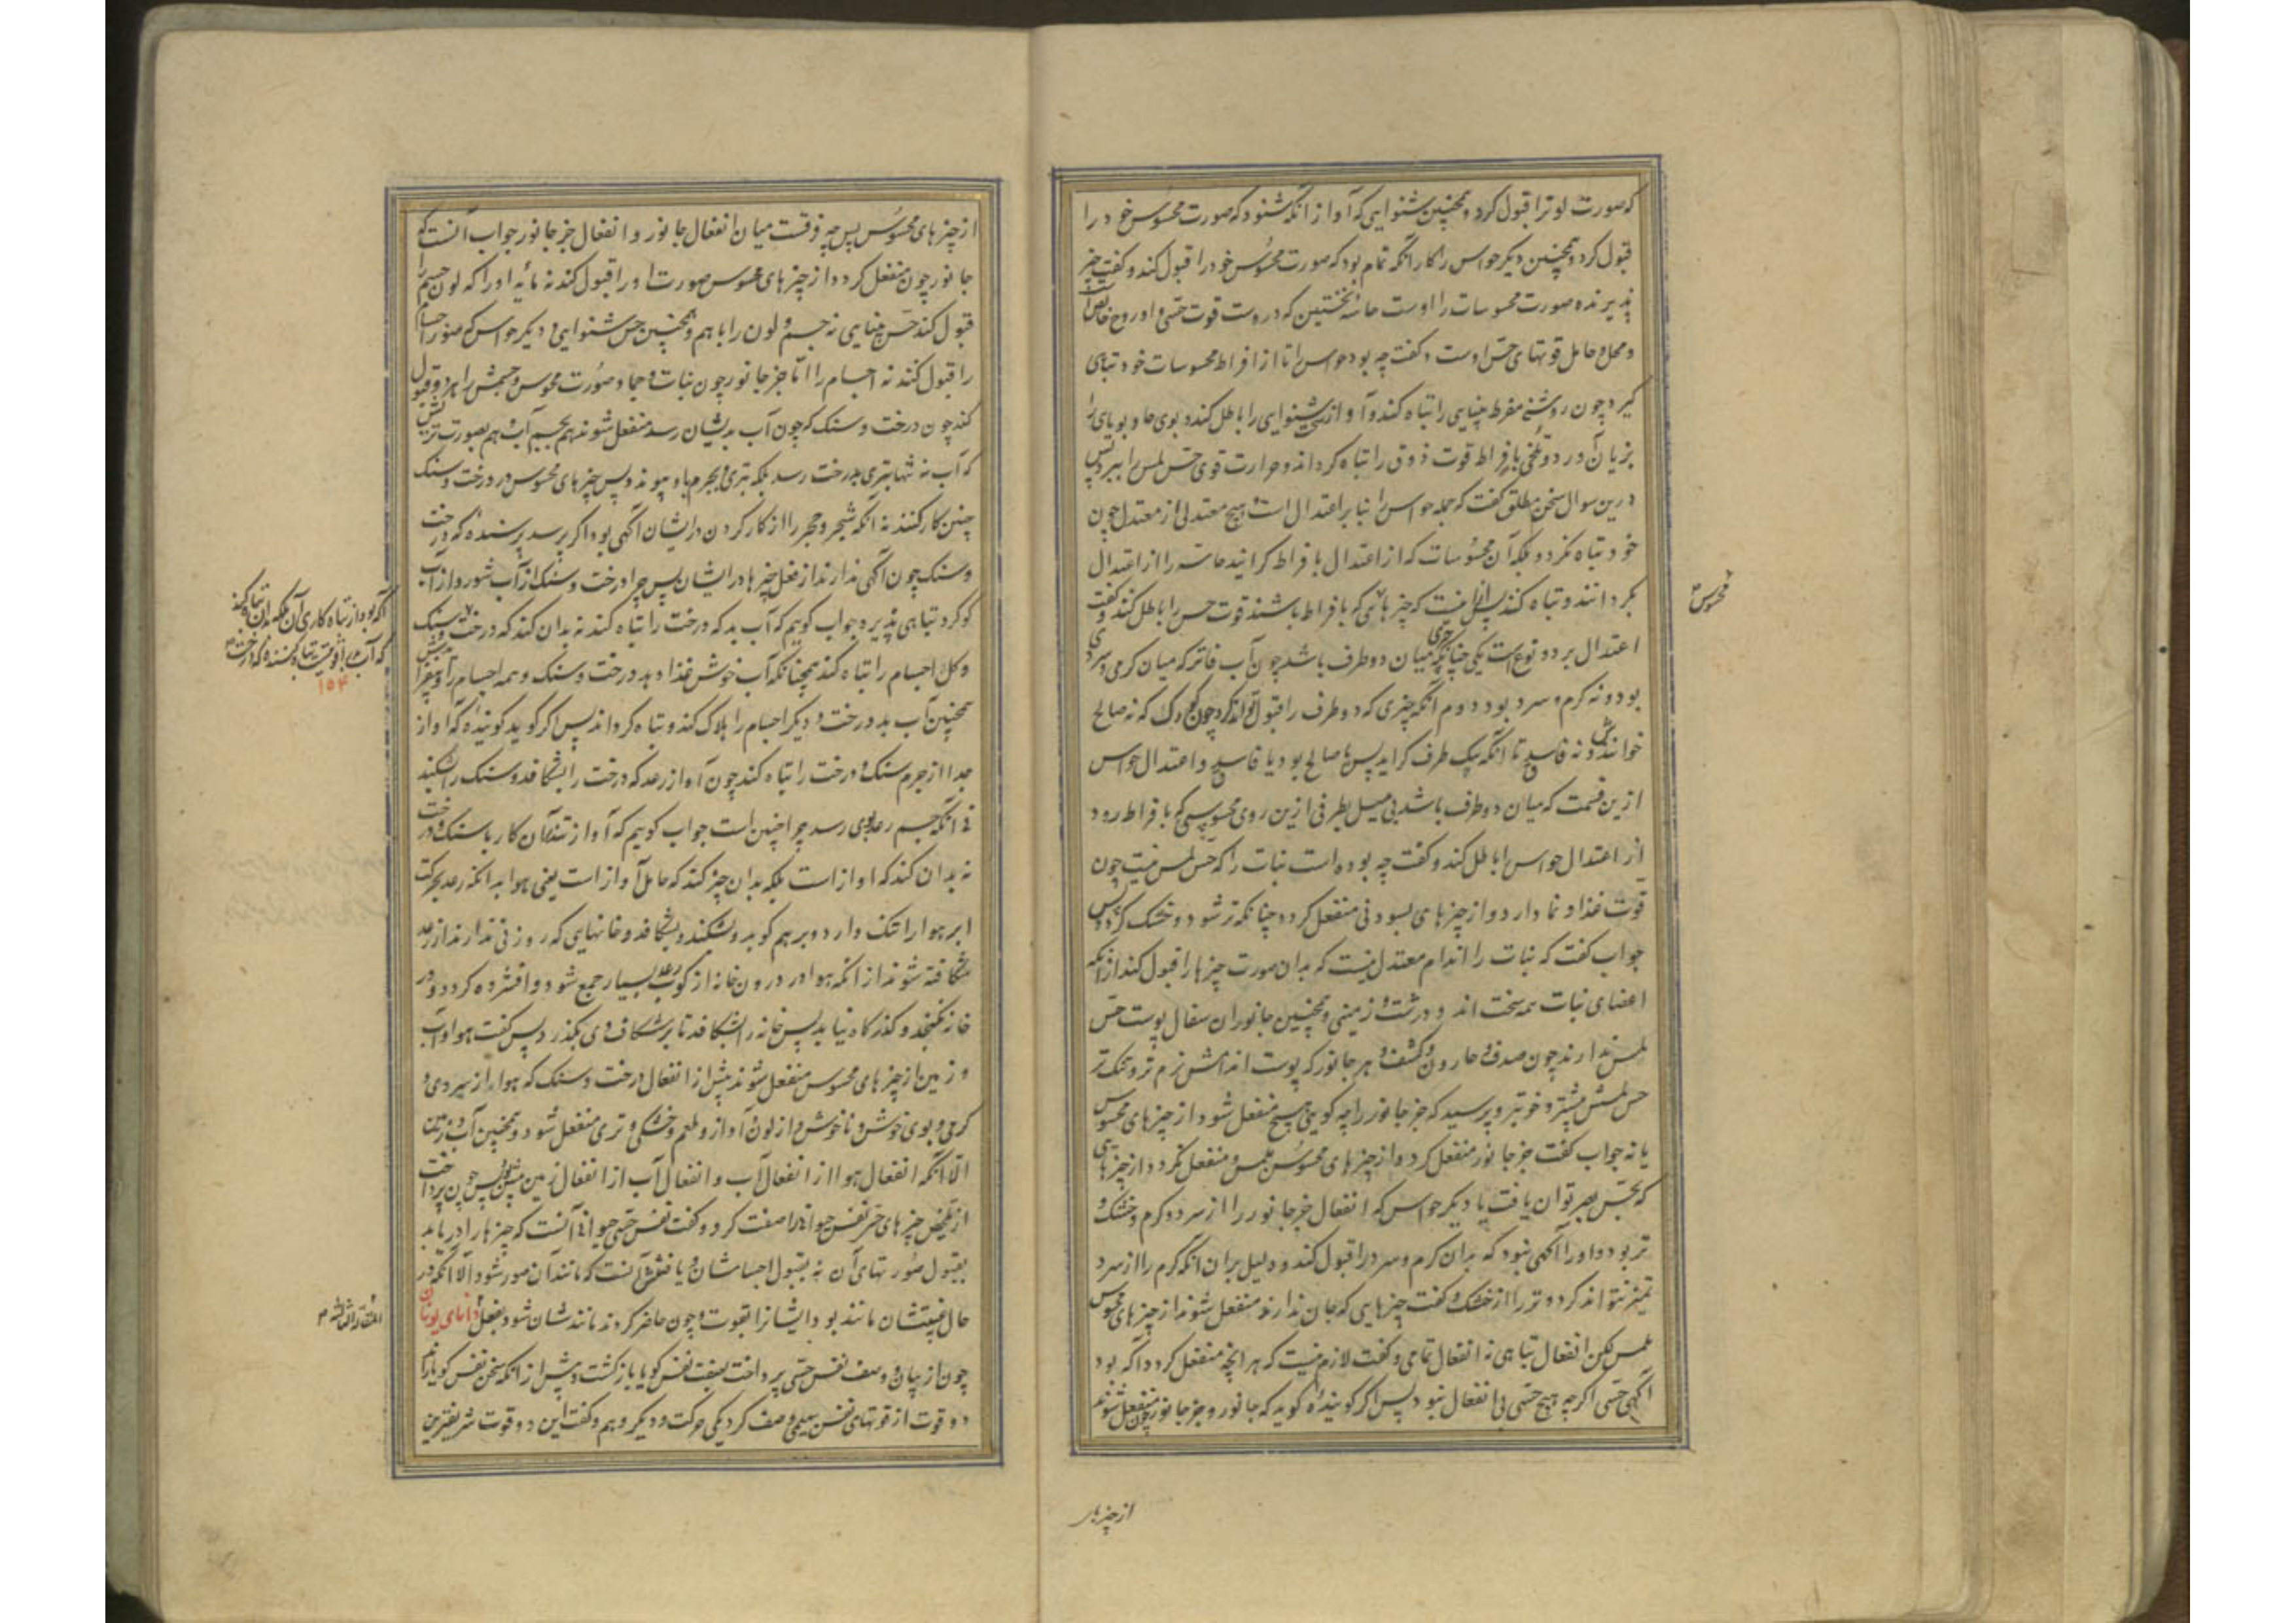 که صورت لو ترا قبول کرد و همچنین شنوایی که آواز انکه شنود که صورت محسوس خود را
قبول کرد و همچنین دیکر حواس را کار انکه تمام بود که صورت محسوس خود را قبول کند و کفت چیز
پذیرنده صورت محسوسات را اوست حاسه نخستین که دروست قوت حسی و او روح خاص است
و محل و حامل قوتهای حس اوست و کفت چه بود حواس را تا از افراط محسوسات خود تباهی
کیرد چون روشنی مفرط بینایی را تباه کند و آواز شنوایی را باطل کند و بوی حاد بویای را
بزیان آورد و تلخی بافراط قوت ذوق را تباه کرداند و حرارت قوی حس لمس را ببرد پس
درین سوال سخن مطلق کفت که جمله حواس را بنا بر اعتدال است و هیچ معتدلی از معتدل چون
خود تباه نکردد بلکه آن محسوسات که از اعتدال بافراط کرایند حاسه را از اعتدال
بکردانند و تباه کنند پس ازینست که چیزهایی که بافراط باشند قوت حس را باطل کنند و کفت
محسوس
اعتدال بر دو نوع است یکی چنانکه چیزی میان دو طرف باشد چون آب فاتر که میان کرمی و سردی
بود و نه کرم و سرد بود و دوم انکه چیزی که دو طرف را قبول تواند کرد چون کودک که نه صالح
خوانندش و نه فاسد تا انکه بیک طرف کراید پس یا صالح بود یا فاسد و اعتدال حواس
ازین قسمت که میان دو طرف باشد بی میل بطرفی ازین روی محسوسی که بافراط رود
از اعتدال حواس را باطل کند و کفت چه بوده است نبات را که حس لمس نیست چون
قوت غذا و نما دارد و از چیزهای بسودنی منفعل کردد چنانکه تر شود و خشک کردد پس
جواب کفت که نبات را اندام معتدل نیست که بدان صورت چیزها را قبول کند از انکه
اعضای نبات همه سخت اند و درشت و زمینی و همچنین جانوران سفال پوست حس
لمس ندارند چون صدف و حلزون و کشف و هر جانور که پوست اندامش نرم تر و تنک تر
حس لمسش بیشتر و خوبتر و پرسید که جز جانور را چه کویی هیچ منفعل شود از چیزهای محسوس
یا نه جواب کفت جز جانور منفعل کردد از چیزهای محسوس بلمس و منفعل نکردد از چیزهای
که بحس بصر توان یافت یا دیکر حواس که انفعال جز جانور را از سرد و کرم و خشک و
تر بود و او را آکهی نبود که بدان کرم و سرد را قبول کند و دلیل بر ان انکه کرم را از سرد
تمیز نتواند کرد و تر را از خشک و کفت چیزهایی که جان ندارند منفعل شوند از چیزهای محسوس
بلمس لکن انفعال تباهی نه انفعال تمامی و کفت لازم نیست که هر انچه منفعل کردد آکه بود
آکهی حسی اکرچه هیچ حسی بی انفعال نبود پس اکر کوینده کوید که جانور و جز جانور چون منفعل شوند
از چیزهای
از چیزهای محسوس پس چه فرقست میان انفعال جانور و انفعال جز جانور جواب آنست که
جانور چون منفعل کردد از چیزهای محسوس صورت او را قبول کند نه مایه او را که لون جسم را
قبول کند حس بینایی نه جسم و لون را باهم و همچنین حس شنوایی و دیکر حواس که صور اجسام
را قبول کند نه اجسام را اما جز جانور چون نبات و جماد صورت محسوس و جسمش را هر دو قبول
کند چون درخت و سنک که چون آب بدیشان رسد منفعل شوند هم بجسم آب و هم بصورت تریش
که آب نه تنها بتری بدرخت رسد بلکه بتری و بجرم باو پیوندد پس چیزهای محسوس در درخت و سنک
چنین کار کنند نه انکه شجر و حجر را از کار کردن در ایشان آکهی بود اکر پرسد پرسنده که درخت
و سنک چون آکهی ندارند از فعل چیزها در ایشان پس چرا درخت و سنک از آب شور و از آب
کوکرد تباهی پذیرد جواب کوییم که آب بد که درخت را تباه کند نه بدان کند که درخت و سنک
اکه بود از تباه کاری آن بلکه بدان تباه کند
و کل اجسام را تباه کند همچنانکه آب خوش غذا دهد درخت و سنک و همه اجسام را
۱۵۴
همچنین آب بد درخت و دیکر اجسام را هلاک کند و تباه کرداند پس اکر کوید کوینده که آواز
جدا از جرم سنک و درخت را تباه کند چون آواز رعد که درخت را بشکافد و سنک را بشکند
بی انکه جسم رعد بوی رسد چرا چنین است جواب کوییم که آواز تند آن کار با سنک و درخت
نه بدان کند که اواز است بلکه بدان چیز کند که حامل آواز است یعنی هوا بدانکه رعد بحرکت
ابر هوا را تنک دارد و بر هم کوبد و بشکند و بشکافد و خانهایی که روزنی ندارند از رعد
شکافته شوند از انکه هوا در درون خانه از کوب رعد بسیار جمع شود و افشرده کردد و در
خانه نکنجد و کذرکاه نیابد پس خانه را بشکافد تا بر شکاف وی بکذرد پس کفت هوا و آب
و زمین از چیزهای محسوس منفعل شوند بیش از انفعال درخت و سنک که هوا از سردی و
کرمی و بوی خوش و ناخوش و از لون و آواز و طعم و خشکی و تری منفعل شود و همچنین آب و زمین
الا انکه انفعال هوا از انفعال آب و انفعال آب از انفعال زمین بیش بود پس چون پرداخت
از تلخیص چیزهای حس نفس حیوانی را صفت کرد و کفت نفس حسی حیوانی آنست که چیزها را دریابد
بقبول صورتهای آن نه بقبول اجسامشان و یا نفس آنست که مانند آن صور شود الا انکه در
حال غیبتشان مانند بود ایشانرا بقوت و چون حاضر کردند مانندشان شود بفعل دانای یونان
المقالة الثالثة
چون از بیان وصف نفس حسی پرداخت بصفت نفس کویا باز کشت و پیش از انکه سخن نفس کویا راند
دو قوت از قوتهای نفس بهیمی وصف کرد یکی حرکت و دیکر وهم و کفت این دو قوت شریفترین